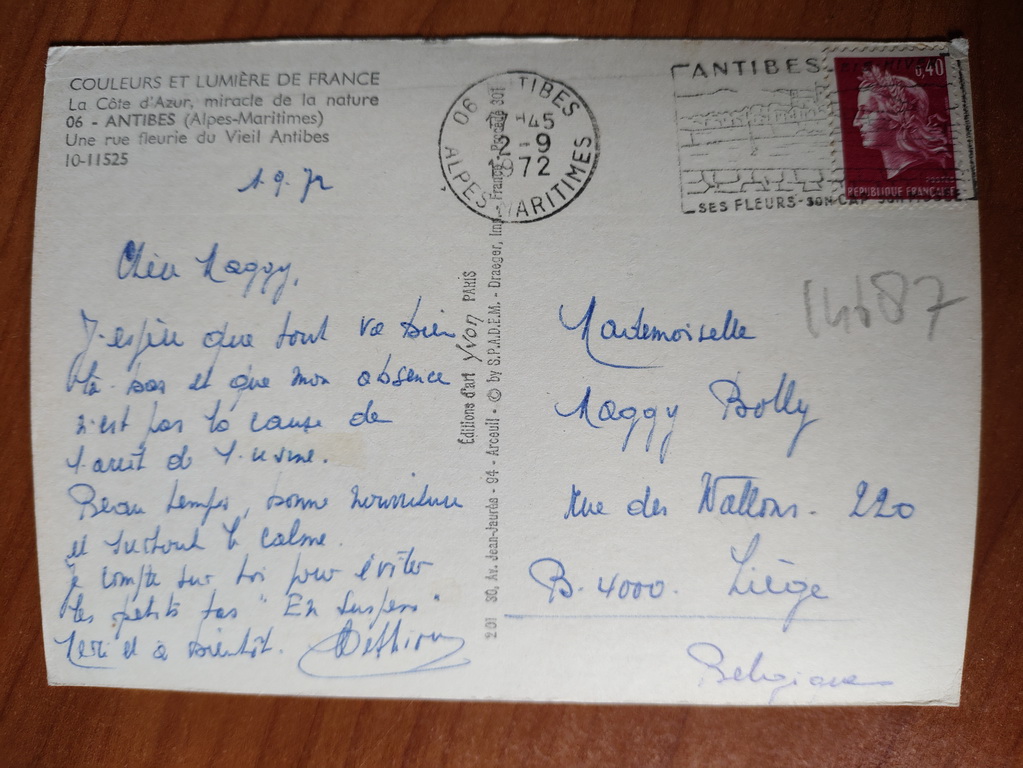 COULEURS ET LUMIÈRE DE FRANCE
La Côte d'Azur, miracle de la nature
06 - ANTIBES (Alpes-Maritimes)
Une rue fleurie du Vieil Antibes
10-11525
1.9.72
Chère Maggy,
J'espère que tout va bien
là-bas et que mon absence
n'est pas la cause de
l'arrêt de l'usine.
Beau temps, bonne nourriture
et surtout le calme.
Je compte sur toi pour éviter
les petits tas "En suspens"
Merci et à bientôt.
06 ANTIBES
17-45
2-9
1972
ALPES-MARITIMES
ANTIBES
SES FLEURS-SON CAP
0,40
POSTES
REPUBLIQUE FRANÇAISE
14687
Mademoiselle
Maggy Bolly
Rue des Wallons. 220
B. 4000. Liège
Belgique
Éditions d'art Yvon PARIS
201 30, Av. Jean-Jaurès - 94 - Arcueil - © by S.P.A.D.E.M. - Draeger, Imp. France - Procédé 301